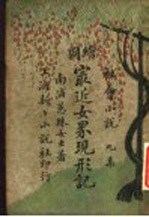 社會小說 九集
繪圖
最近女界現形記
南浦蕙珠女士著
上海新新小說社印行